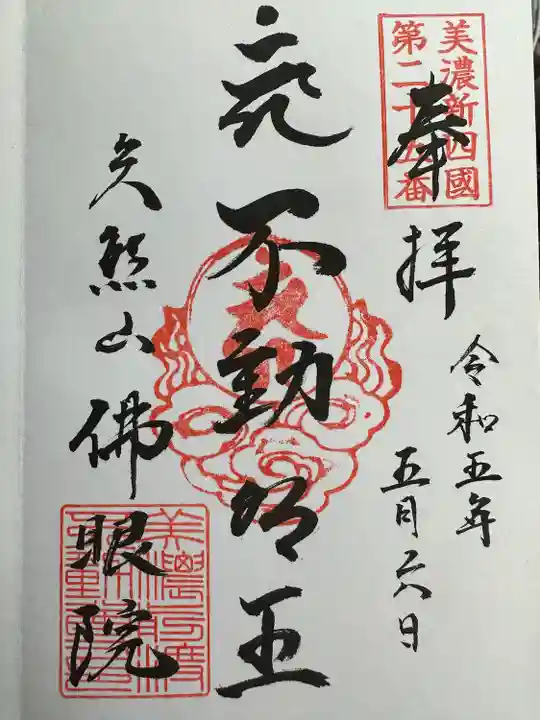 美濃新四國
第二十五番
奉拝
令和五年
五月六日
不動明王
矢熊山佛眼院